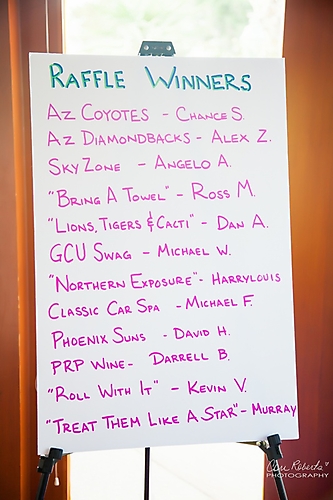 RAFFLE WINNERS
AZ COYOTES - CHANCE S.
AZ DIAMONDBACKS - ALEX Z.
SKY ZONE - ANGELO A.
"BRING A TOWEL" - ROSS M.
"LIONS, TIGERS & CACTI" - DAN A.
GCU SWAG - MICHAEL W.
"NORTHERN EXPOSURE" - HARRYLOUIS
CLASSIC CAR SPA - MICHAEL F.
PHOENIX SUNS - DAVID H.
PRP WINE - DARRELL B.
"ROLL WITH IT" - KEVIN V.
"TREAT THEM LIKE A STAR" - MURRAY
Roberts
PHOTOGRAPHY